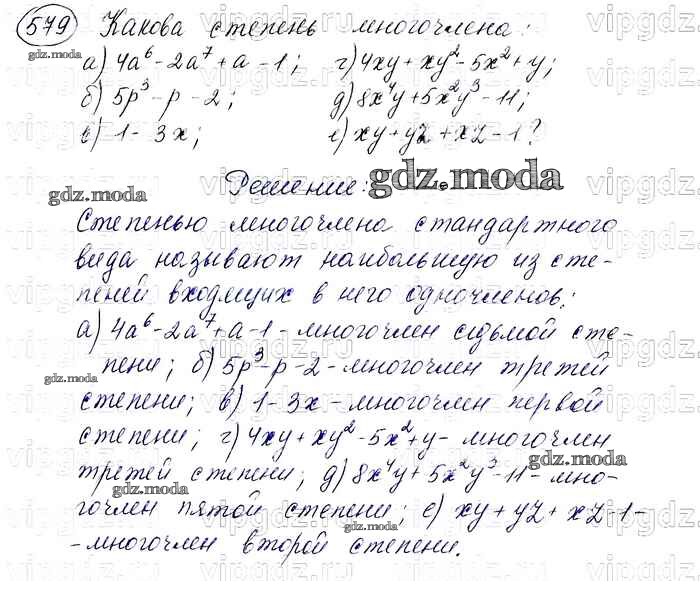 579 Какова степень многочлена:
а) 4a⁶-2a⁷+a-1; г) 4xy+xy²-5x²+y;
б) 5p³-p-2; д) 8x⁴y+5x²y³-11;
в) 1-3x; е) xy+yz+xz-1?
Решение:
Степенью многочлена стандартного
вида называют наибольшую из сте-
пеней входящих в него одночленов:
а) 4a⁶-2a⁷+a-1-многочлен седьмой сте-
пени; б) 5p³-p-2-многочлен третей
степени; в) 1-3x-многочлен первой
степени; г) 4xy+xy²-5x²+y- многочлен
третей степени; д) 8x⁴y+5x²y³-11-мно-
гочлен пятой степени; е) xy+yz+xz-1-
-многочлен второй степени.
gdz.moda
gdz.moda
gdz.moda
gdz.moda
gdz.moda
gdz.moda
gdz.moda
vipgdz.ru